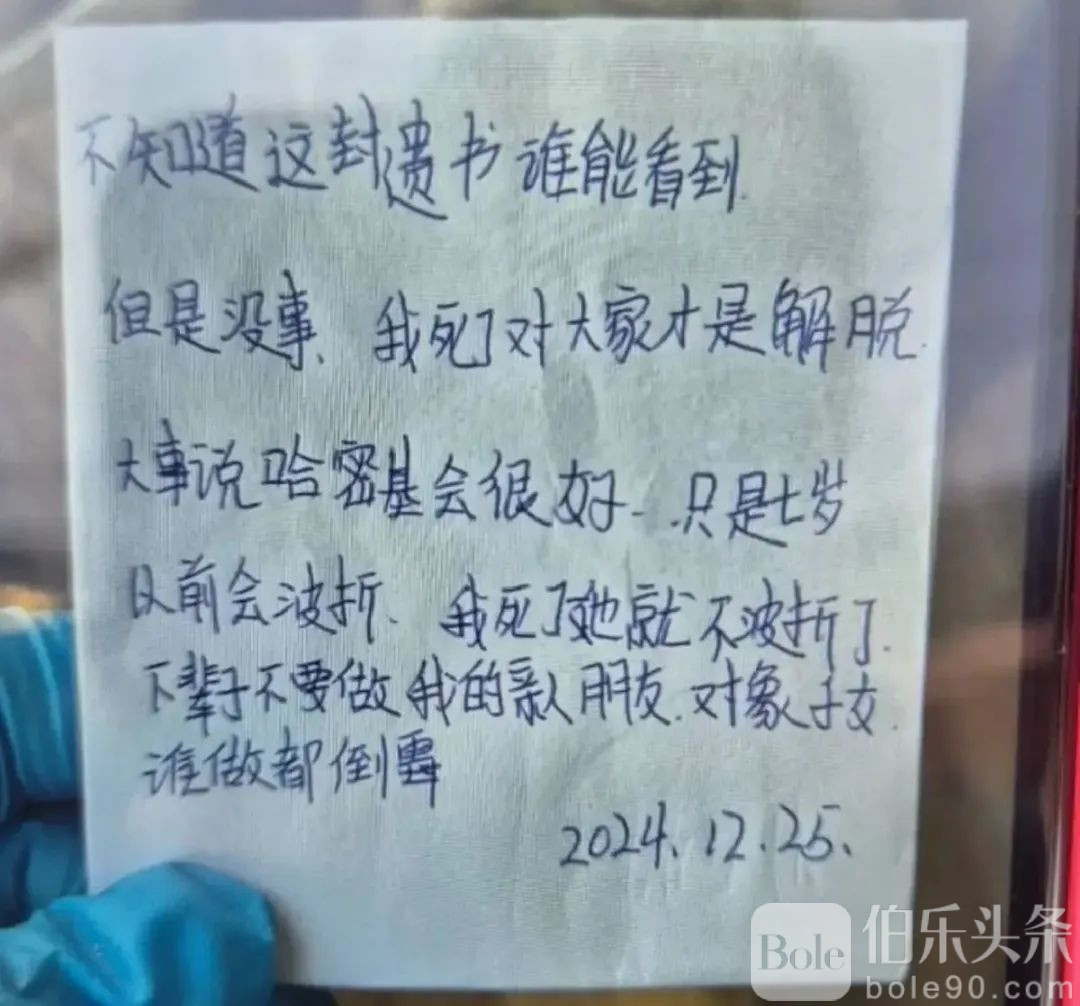 不知道这封遗书谁能看到.
但是没事、我死了对大家才是解脱.
大事说哈密基会很好..只是七岁
以前会波折、我死了她就不波折了.
下辈子不要做我的亲人朋友.对象子女.
谁做都倒霉
2024.12.25.
Bole 伯乐头条
bole90.com